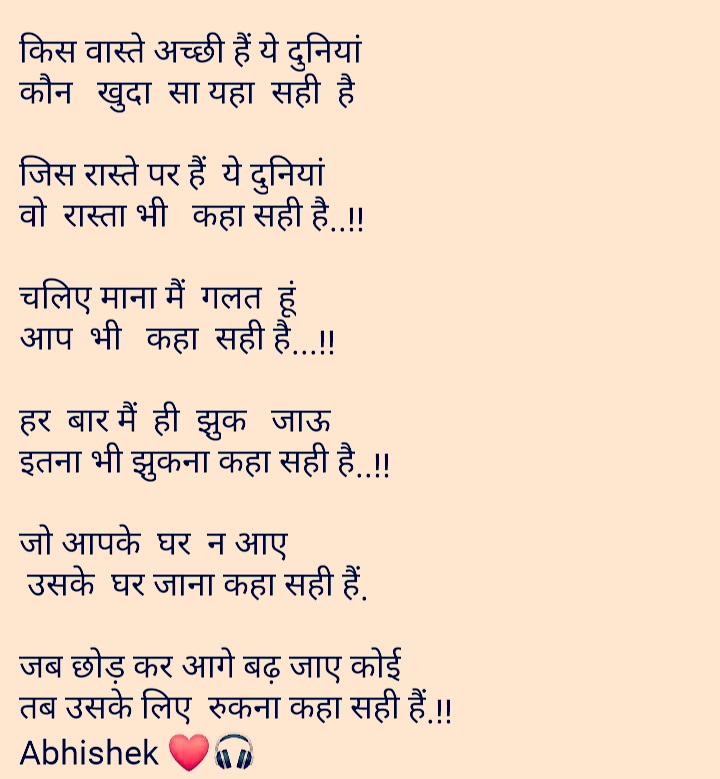 किस वास्ते अच्छी हैं ये दुनियां
कौन खुदा सा यहा सही है
जिस रास्ते पर हैं ये दुनियां
वो रास्ता भी कहा सही है..!!
चलिए माना मैं गलत हूं
आप भी कहा सही है...!!
हर बार मैं ही झुक जाऊ
इतना भी झुकना कहा सही है..!!
जो आपके घर न आए
उसके घर जाना कहा सही हैं.
जब छोड़ कर आगे बढ़ जाए कोई
तब उसके लिए रुकना कहा सही हैं.!!
Abhishek ❤️🎧